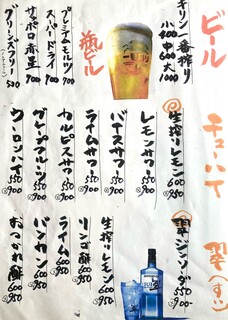 ビール
キリン一番搾り
小400 中600 大1000
瓶ビール
プレミアムモルツ 900
スーパードライ 900
サッポロ赤星 900
グリーンズフリー 500
チューハイ
生搾りレモン 600 950
レモンサワー 550 900
バイスサワー 550 900
ライムサワー 550 900
カルピスサワー 550 900
グレープフルーツ 550 900
ウーロンハイ 550 900
翠(すい)
翠ジンソーダ 550 900
生搾りレモン 600 950
リンゴ酢 600 950
ライム 600 950
バンカン 600 950
おかぐれ酢 600 950